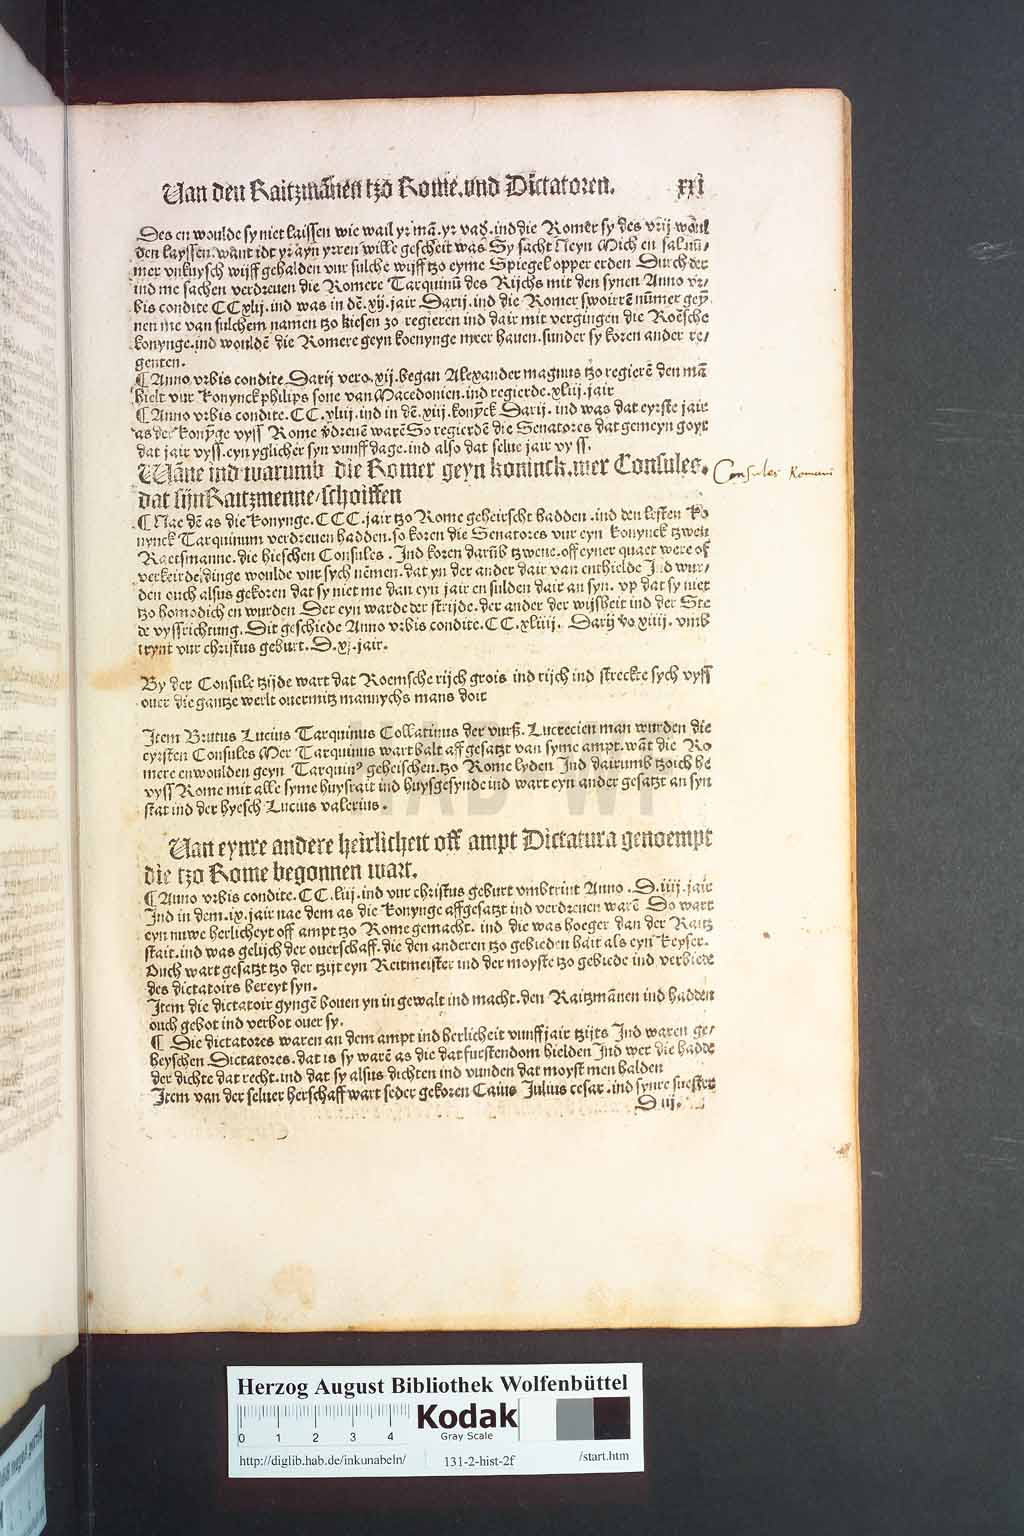 Van den Raitzmãnen tzo Rome. vnd Dictatoren. xxi
Des en woulde sy niet laissen wie wail yr mã. yr vad̕. ind die Romer sy des vrij woul
den layssen. want idt yr ayn yrren wille gescheit was Sy sacht Neyn Mich en sal nũ-
mer vnkuysch wijff gehalden vur sulche wijff tzo eyme Spiegel opper erden Durch der
ind me sachen verdreuen die Romere Tarquinũ des Rijchs mit den synen Anno vr-
bis condite CCxlij. ind was in dẽ. xij. jair Darij. ind die Romer swoirẽ nũmer geyñ
nen me van sulchem namen tzo kiesen zo regieren ind dair mit vergingen die Roẽsche
konynge. ind wouldẽ die Romere geyn koenynge meer hauen. sunder sy koren ander re-
genten.
¶ Anno vrbis condite Darij vero. xij. began Alexander magnus tzo regierẽ den mã
hielt vur konynck philips sone van Macedonien. ind regierde. xliij. jair
¶ Anno vrbis condite. CC. xliij. ind in dẽ. xiij. konỹck Darij. ind was dat eyrste jair
as der konỹge vyss Rome v̕dreuẽ warẽ So regierdẽ die Senatores dat gemeyn goyt
dat jair vyss. eyn yglicher syn vunff dage. ind also dat selue jair vyss.
Wãne ind warumb die Romer geyn koninck. mer Consules.
Consules Romani
dat sijn Raitzmenne/ schoiffen
¶ Nae dẽ as die konynge. CCC. jair tzo Rome geheirscht hadden. ind den lesten ko
nynck Tarquinum verdreuen hadden. so koren die Senatores vur eyn konynck tzwen
Raetsmanne. die hieschen Consules. Ind koren darũb tzwene. off eyner quaet were of
verkeirde dinge woulde vur sych nẽmen. dat yn der ander dair van enthielde Ind wur-
den ouch alsus gekoren dat sy niet me dan eyn jair en sulden dair an syn. vp dat sy niet
tzo homodich en wurden Der eyn warde der strijde. der ander der wijsheit ind der Ste
de vyssrichtung. Dit geschiede Anno vrbis condite. CC. xliiij. Darij v̊o xiiij. vmb
trynt vur christus geburt. D. xj. jair.
By der Consule tzijde wart dat Roemsche rijch grois ind rijch ind streckte sych vyss
ouer die gantze werlt ouermitz mannychs mans doit
Item Brutus Lucius Tarquinus Collatinus der vurß. Lucrecien man wurden die
eyrsten Consules Mer Tarquinus wart balt aff gesatzt van syme ampt. wãt die Ro
mere enwoulden geyn Tarquinꝰ geheischen. tzo Rome lyden Ind dairumb tzoich he
vyss Rome mit alle syme huysrait ind huysgesynde ind wart eyn ander gesatzt an syn
stat ind der hyesch Lucius valerius.
Van eynre andere heirlicheit off ampt Dictatura genoempt
die tzo Rome begonnen wart.
¶ Anno vrbis condite. CC. liij. ind vur christus geburt vmbtrint Anno. D. iiij. jair
Ind in dem. ix. jair nae dem as die konynge affgesatzt ind verdreuen warẽ Do wart
eyn nuwe herlicheyt off ampt tzo Rome gemacht. ind die was hoeger dan der Raitz
stait. ind was gelijch der ouerschaff. die den anderen tzo gebieden hait als eyn keyser.
Ouch wart gesatzt tzo der tzijt eyn Reitmeister ind der moyste tzo gebiede ind verbiede
des dictatoirs bereyt syn.
Item die dictatoir gyngẽ bouen yn in gewalt ind macht. den Raitzmãnen ind hadden
ouch gebot ind verbot ouer sy.
¶ Die dictatores waren an dem ampt ind herlicheit vunff jair tzijts Ind waren ge-
heyschen Dictatores. dat is sy warẽ as die dat furstendom hielden Ind wer die hadde
der dichte dat recht. ind dat sy alsus dichten ind vunden dat moyst men halden
Item van der seluer herschaff wart seder gekoren Caius Julius cesar. ind synre suester
D iij.
Herzog August Bibliothek Wolfenbüttel
0 1 2 3 4
Kodak
Gray Scale
http://diglib.hab.de/inkunabeln/ 131-2-hist-2f /start.htm